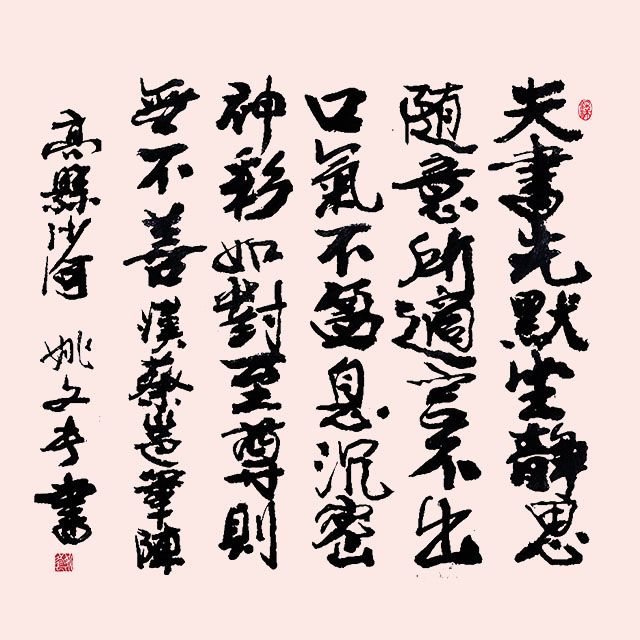 夫書先默坐靜思
随意所適言不出
口氣不盈息沉密
神彩如對至尊則
無不善漢蔡邕筆陣
高縣沙河 姚文書